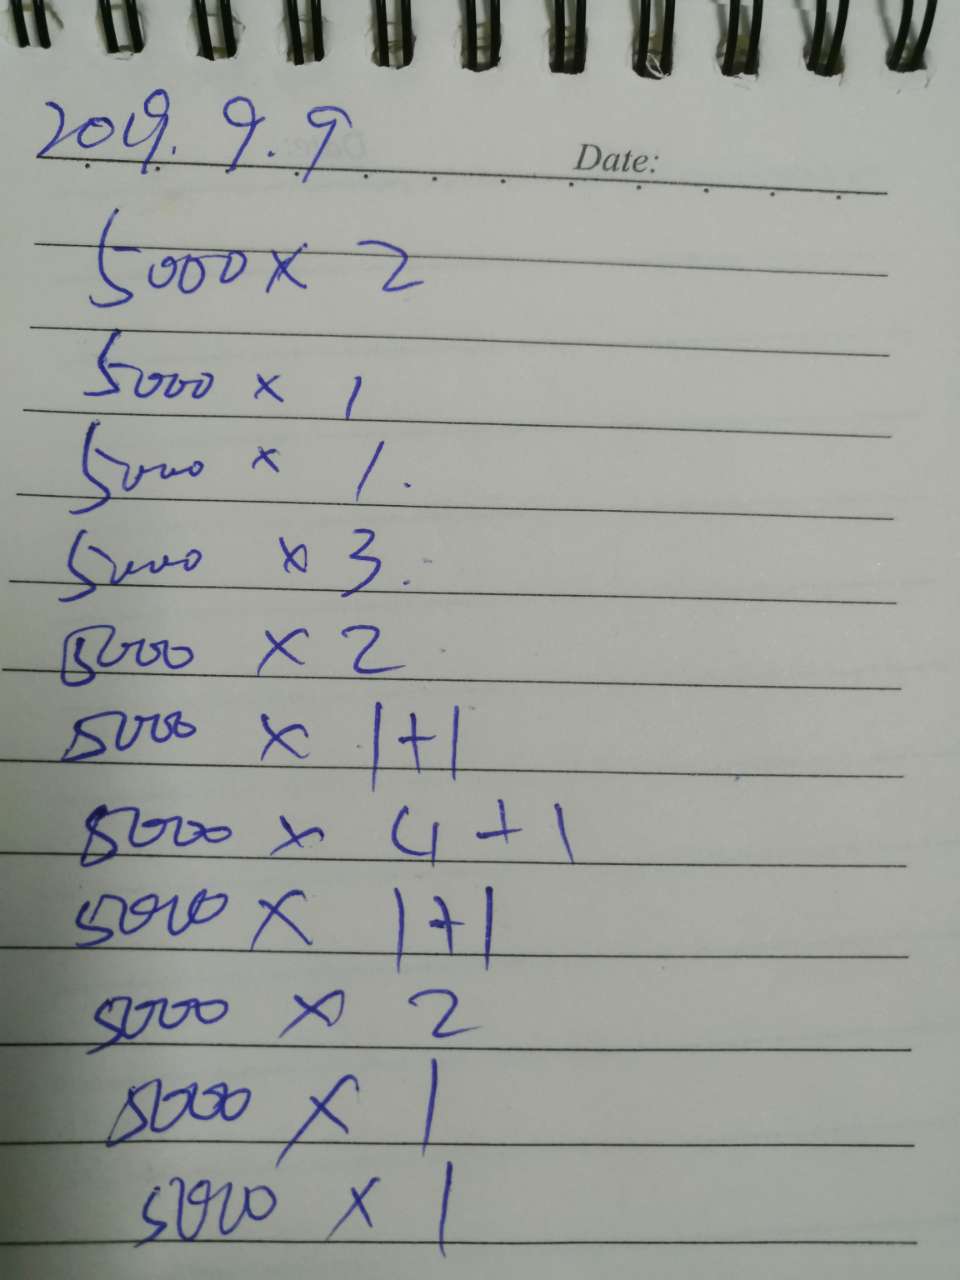 2019.9.9
Date:
5000 × 2
5000 × 1
5000 × 1.
5000 × 3.
5000 × 2
5000 × 1+1
5000 × 4+1
5000 × 1+1
5000 × 2
5000 × 1
5000 × 1